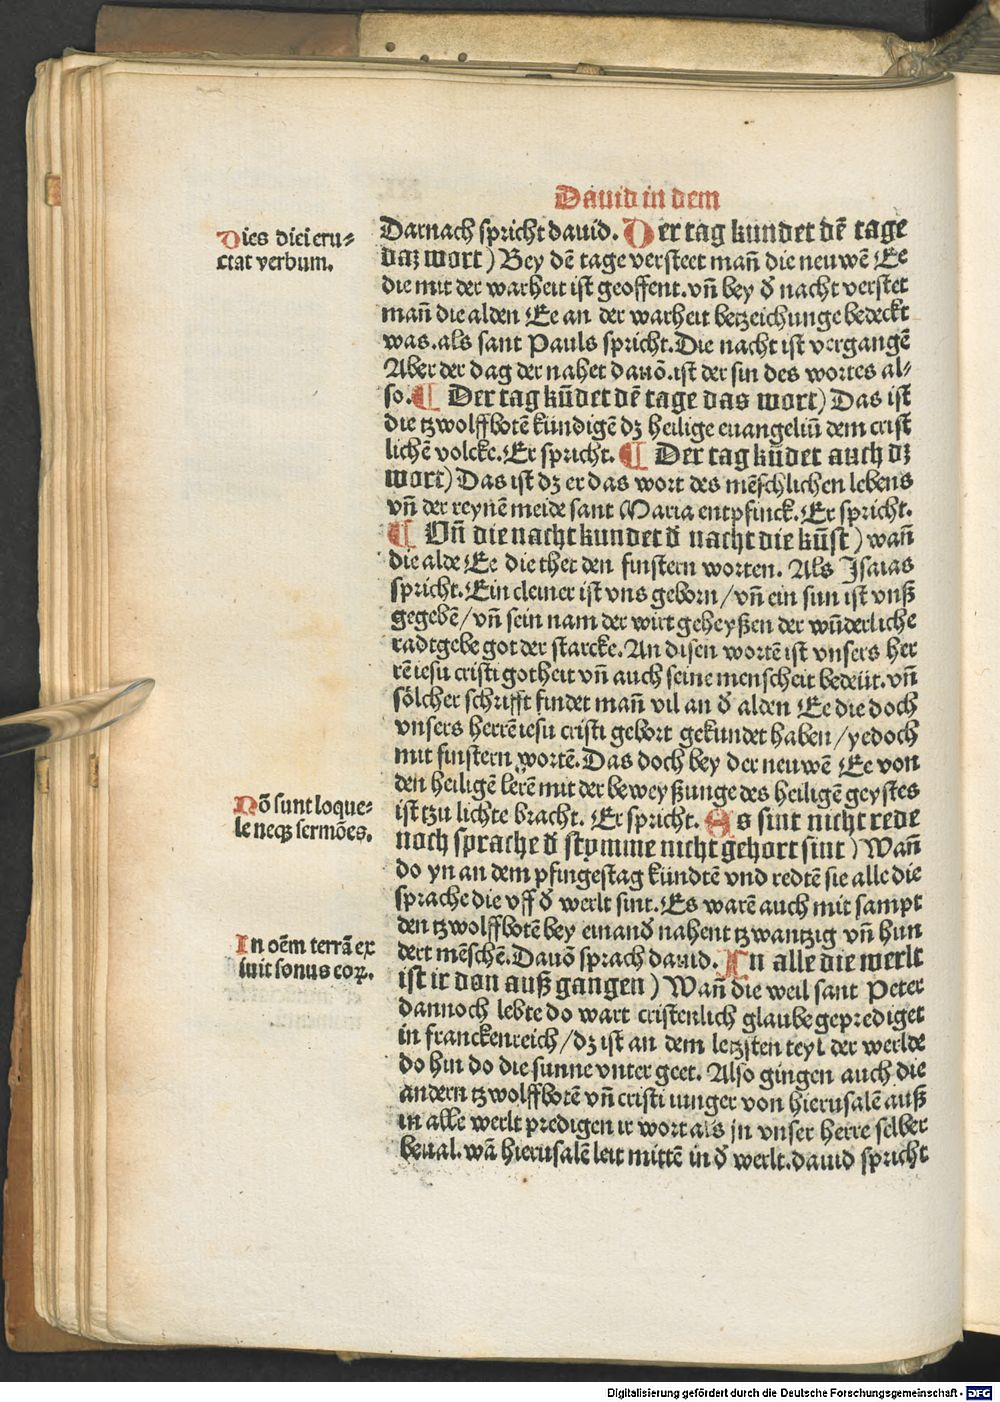 Dauid in dem
Dies diei eru-
ctat verbum.
Darnach spricht dauid. Der tag kundet dē tage
daz wort) Bey dē tage versteet mañ die neuwē Ee
die mit der warheit ist geoffent. vñ bey d̄ nacht verstet
mañ die alden Ee an der warheit betzeichunge bedeckt
was. als sant Pauls spricht. Die nacht ist vergangē
Aber der dag der nahet dauō. ist der sin des wortes al-
so. ¶ Der tag kūdet dē tage das wort) Das ist
die tzwolffbotē kündigē dz heilige euangeliū dem crist
lichē volcke. Er spricht. ¶ Der tag kūdet auch dz
wort) Das ist dz er das wort des mēschlichen lebens
vñ der reynē meide sant Maria entpfinck. Er spricht.
¶ Vñ die nacht kundet d̄ nacht die kūst) wañ
die alde Ee die thet den finstern worten. Als Isaias
spricht. Ein cleiner ist vns geborn / vñ ein sun ist vnß
gegebē / vñ sein nam der wirt geheyßen der wūderliche
radtgebe got der starcke. An disen wortē ist vnsers her
rē iesu cristi gotheit vñ auch seine menscheit bedeüt. vñ
sölcher schrifft findet mañ vil an d̄ alden Ee die doch
vnsers herrē iesu cristi geburt gekundet haben / yedoch
mit finstern wortē. Das doch bey der neuwē Ee von
den heiligē lerē mit der beweyßunge des heiligē geystes
ist tzu lichte bracht. Er spricht. Es sint nicht rede
noch sprache d̄ stymme nicht gehort sint) Wañ
Nō sunt loque-
le neqꝫ sermōes.
do yn an dem pfingestag kündtē vnd redtē sie alle die
sprache die vff d̄ werlt sint. Es warē auch mit sampt
den tzwolffbotē bey einand̄ nahent tzwantzig vñ hun
dert mēschē. Dauō sprach dauid. In alle die werlt
ist ir don auß gangen) Wañ die weil sant Peter
In oēm terrā ex
iuit sonus coꝝ.
dannoch lebte do wart cristenlich glaube geprediget
in franckenreich / dz ist an dem letzsten teyl der werlde
do hin do die sunne vnter geet. Also gingen auch die
andern tzwolffbotē vñ cristi iunger von hierusalē auß
in alle werlt predigen ir wort als jn vnser herre selber
beual. wā hierusalē leit mittē in d̄ werlt. dauid spricht
Digitalisierung gefördert durch die Deutsche Forschungsgemeinschaft - DFG